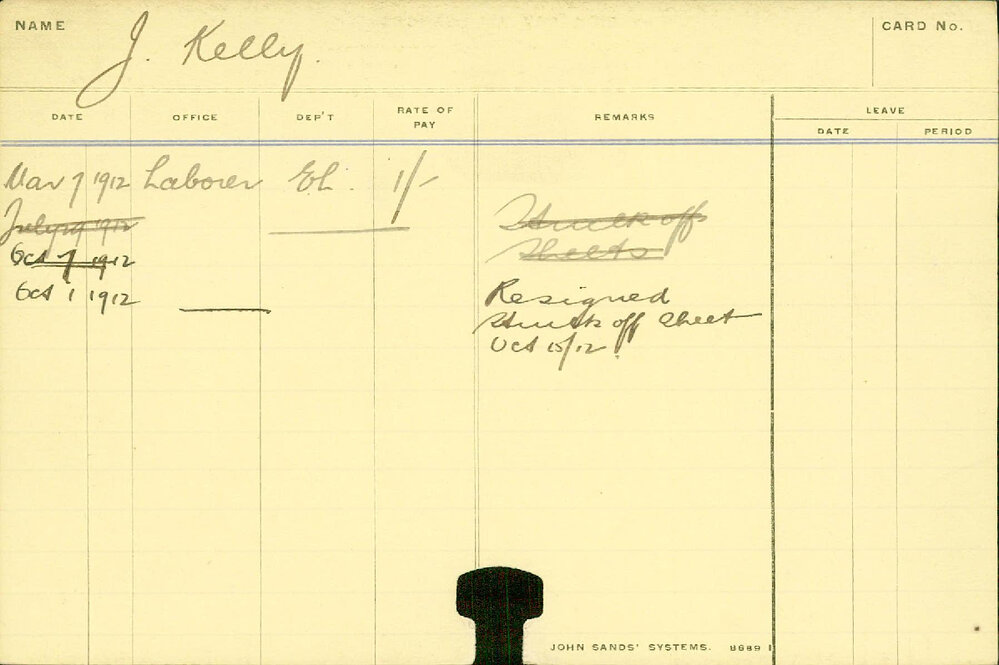 NAME J. Kelly. CARD No.
DATE OFFICE DEP'T RATE OF PAY REMARKS LEAVE
DATE PERIOD
Mar 7 1912 Laborer E.L. 1/-
July 29 1912 Struck off
Sheets
Oct 7 1912
Oct 1 1912 Resigned
Struck off Sheet
Oct 15/12
JOHN SANDS' SYSTEMS. 8689